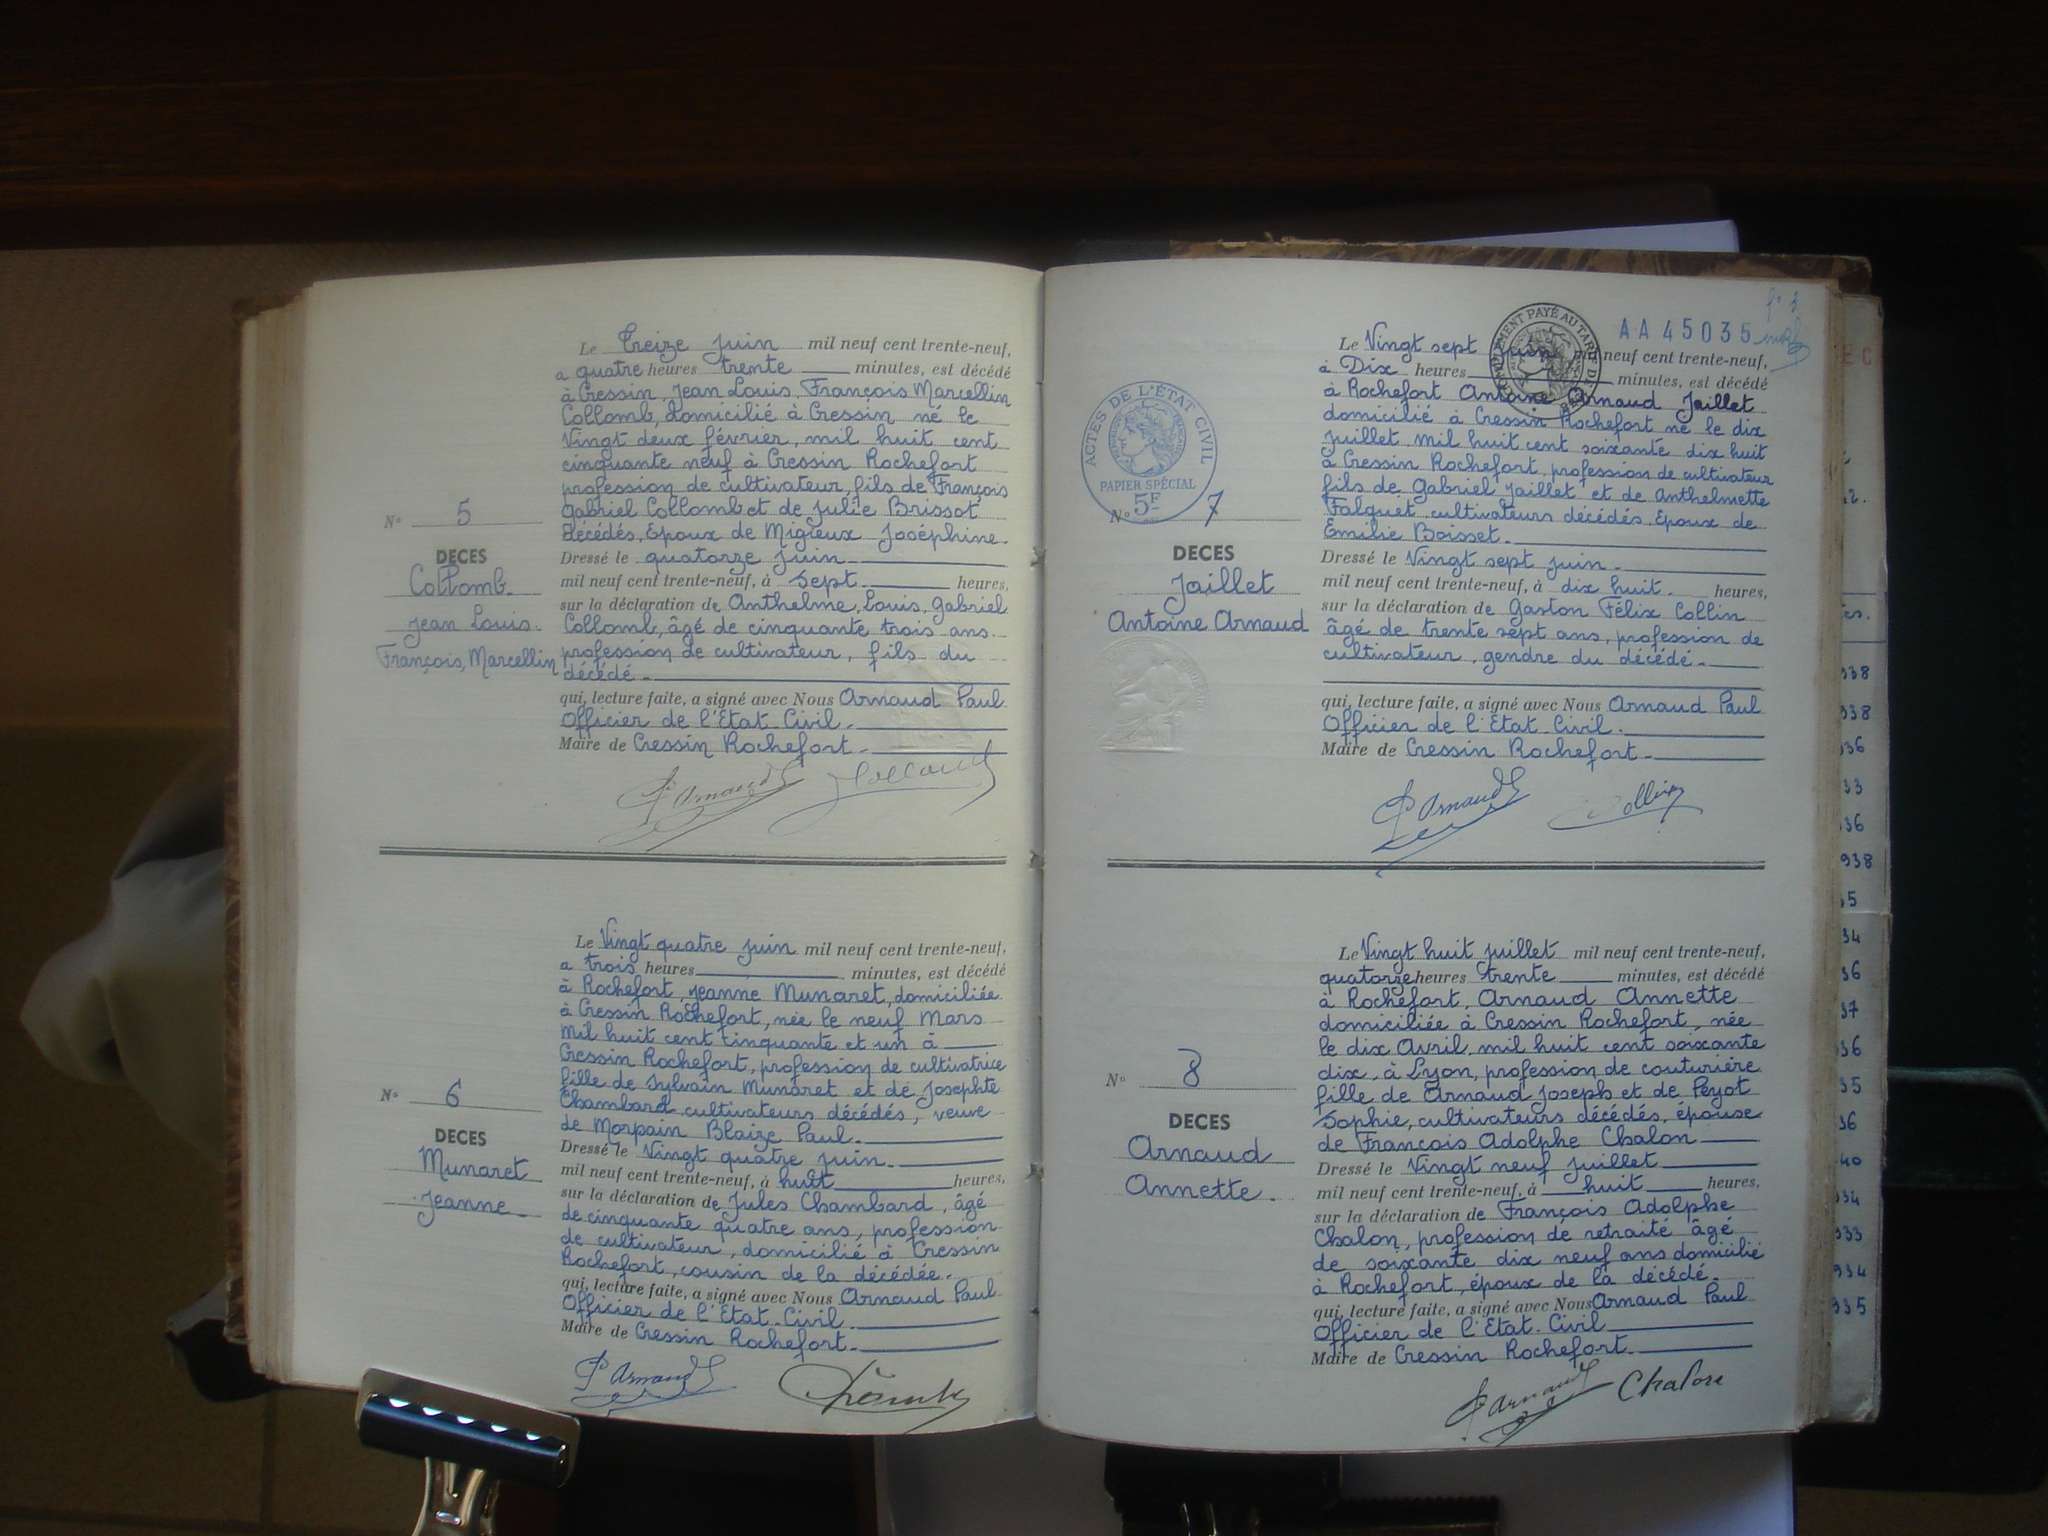 Le Treize juin mil neuf cent trente-neuf,
a quatre heures trente minutes, est décédé
à Cressin, Jean Louis, François Marcellin
Collomb, domicilié à Cressin né le
Vingt deux février, mil huit cent
cinquante neuf à Cressin Rochefort
profession de cultivateur, fils de François
Gabriel Collomb et de Julie Brissot
décédés, Epoux de Migieux Joséphine.
N° 5
DECES
Collomb.
Jean Louis.
François, Marcellin
Dressé le quatorze juin
mil neuf cent trente-neuf, à sept heures,
sur la déclaration de Anthelme, Louis, Gabriel
Collomb, âgé de cinquante trois ans.
profession de cultivateur, fils du
décédé.
qui, lecture faite, a signé avec Nous Arnaud Paul
Officier de l'Etat Civil.
Maire de Cressin Rochefort.
P. Arnaud
Le Vingt quatre juin mil neuf cent trente-neuf,
a trois heures minutes, est décédé
à Rochefort, Jeanne Munaret, domiciliée
à Cressin Rochefort, née le neuf Mars
mil huit cent cinquante et un à
Cressin Rochefort, profession de cultivatrice
fille de Sylvain Munaret et de Josephte
Chambard cultivateurs décédés, veuve
de Morpain Blaize Paul.
N° 6
DECES
Munaret
Jeanne
Dressé le Vingt quatre juin.
mil neuf cent trente-neuf, à huit heures,
sur la déclaration de Jules Chambard, âgé
de cinquante quatre ans, profession
de cultivateur, domicilié à Cressin
Rochefort, cousin de la décédée.
qui, lecture faite, a signé avec Nous Arnaud Paul
Officier de l'Etat Civil.
Maire de Cressin Rochefort.
P. Arnaud
AA 45035
Le Vingt sept juin mil neuf cent trente-neuf,
à Dix heures minutes, est décédé
à Rochefort Antoine Arnaud Jaillet
domicilié à Cressin Rochefort né le dix
juillet mil huit cent soixante dix huit
à Cressin Rochefort, profession de cultivateur
fils de Gabriel Jaillet et de Anthelmette
Falquet cultivateurs décédés. Epoux de
Emilie Boisset.
ACTES DE L'ÉTAT CIVIL
PAPIER SPÉCIAL
5F
N° 7
DECES
Jaillet
Antoine Arnaud
Dressé le Vingt sept juin.
mil neuf cent trente-neuf, à dix huit. heures,
sur la déclaration de Gaston Félix Collin
âgé de trente sept ans, profession de
cultivateur, gendre du décédé.
qui, lecture faite, a signé avec Nous Arnaud Paul
Officier de l'Etat Civil.
Maire de Cressin Rochefort.
P. Arnaud Collin
Le Vingt huit juillet mil neuf cent trente-neuf,
quatorze heures trente minutes, est décédé
à Rochefort, Arnaud Annette
domiciliée à Cressin Rochefort, née
le dix Avril, mil huit cent soixante
dix, à Lyon, profession de couturière
fille de Arnaud Joseph et de Peyot
Sophie, cultivateurs décédés, épouse
de François Adolphe Chalon
N° 8
DECES
Arnaud
Annette.
Dressé le Vingt neuf juillet
mil neuf cent trente-neuf, à huit heures,
sur la déclaration de François Adolphe
Chalon, profession de retraité âgé
de soixante dix neuf ans domicilié
à Rochefort, époux de la décédé.
qui, lecture faite, a signé avec Nous Arnaud Paul
Officier de l'Etat Civil
Maire de Cressin Rochefort.
P. Arnaud Chalon